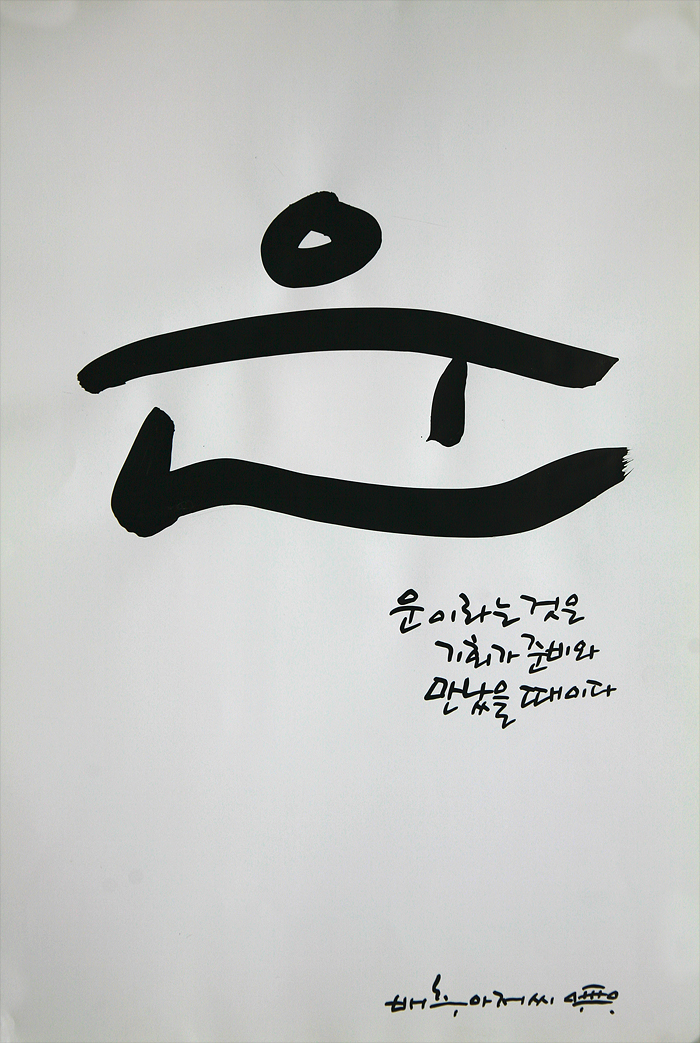 운
운이라는 것은
기회가 준비와
만났을 때이다
배추아저씨